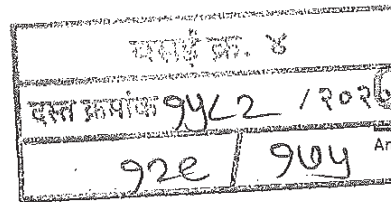 वसई क्र. ४
दस्त क्रमांक १५८२ / २०२
१२९ / १७५